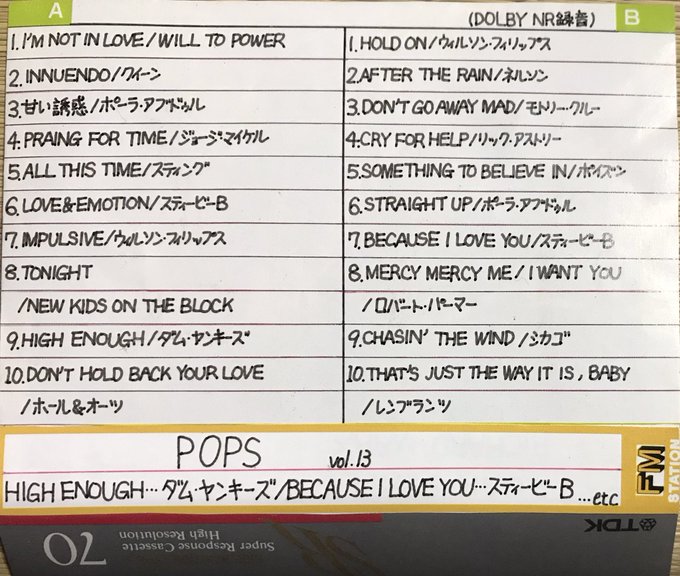 A
(DOLBY NR録音) B
1. I'M NOT IN LOVE/WILL TO POWER
2. INNUENDO/クイーン
3. 甘い誘惑/ポーラ・アブドゥル
4. PRAING FOR TIME/ジョージ・マイケル
5. ALL THIS TIME/スティング
6. LOVE&EMOTION/スティービーB
7. IMPULSIVE/ウィルソン・フィリップス
8. TONIGHT
/NEW KIDS ON THE BLOCK
9. HIGH ENOUGH/ダム・ヤンキーズ
10. DON'T HOLD BACK YOUR LOVE
/ホール&オーツ
1. HOLD ON/ウィルソン・フィリップス
2. AFTER THE RAIN/ネルソン
3. DON'T GO AWAY MAD/モトリー・クルー
4. CRY FOR HELP/リック・アストリー
5. SOMETHING TO BELIEVE IN/ポイズン
6. STRAIGHT UP/ポーラ・アブドゥル
7. BECAUSE I LOVE YOU/スティービーB
8. MERCY MERCY ME/I WANT YOU
/ロバート・パーマー
9. CHASIN' THE WIND/シカゴ
10. THAT'S JUST THE WAY IT IS, BABY
/レンブランツ
POPS vol.13
HIGH ENOUGH…ダム・ヤンキーズ/BECAUSE I LOVE YOU…スティービーB…etc
FM STATION
TDK
Super Response Cassette
High Resolution
70